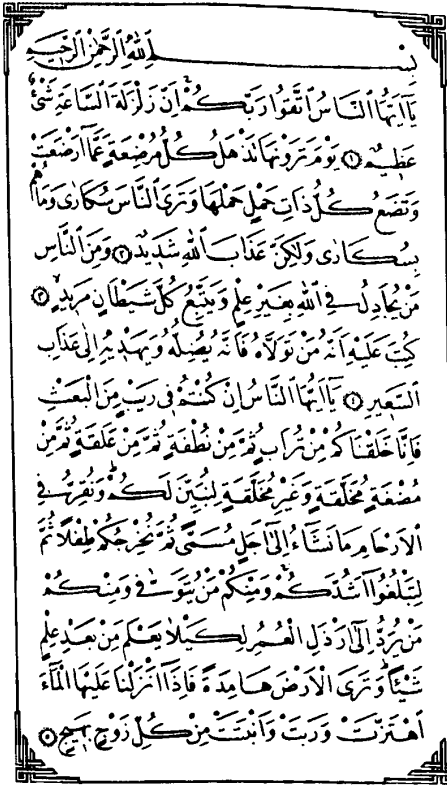 بِسْمِ اللّٰهِ الرَّحْمٰنِ الرَّحِيمِ
يَآ اَيُّهَا النَّاسُ اتَّقُوا رَبَّكُمْ اِنَّ زَلْزَلَةَ السَّاعَةِ شَيْءٌ
عَظِيمٌ ﴿١﴾ يَوْمَ تَرَوْنَهَا تَذْهَلُ كُلُّ مُرْضِعَةٍ عَمَّٓا اَرْضَعَتْ
وَتَضَعُ كُلُّ ذَاتِ حَمْلٍ حَمْلَهَا وَتَرَى النَّاسَ سُكَارٰى وَمَا هُمْ
بِسُكَارٰى وَلٰكِنَّ عَذَابَ اللّٰهِ شَدِيدٌ ﴿٢﴾ وَمِنَ النَّاسِ
مَنْ يُجَادِلُ فِي اللّٰهِ بِغَيْرِ عِلْمٍ وَيَتَّبِعُ كُلَّ شَيْطَانٍ مَرِيدٍ ﴿٣﴾
كُتِبَ عَلَيْهِ اَنَّهُ مَنْ تَوَلَّاهُ فَاَنَّهُ يُضِلُّهُ وَيَهْدِيهِ اِلٰى عَذَابِ
السَّعِيرِ ﴿٤﴾ يَآ اَيُّهَا النَّاسُ اِنْ كُنْتُمْ فِي رَيْبٍ مِنَ الْبَعْثِ
فَاِنَّا خَلَقْنَاكُمْ مِنْ تُرَابٍ ثُمَّ مِنْ نُطْفَةٍ ثُمَّ مِنْ عَلَقَةٍ ثُمَّ مِنْ
مُضْغَةٍ مُخَلَّقَةٍ وَغَيْرِ مُخَلَّقَةٍ لِنُبَيِّنَ لَكُمْ وَنُقِرُّ فِي
الْاَرْحَامِ مَا نَشَٓاءُ اِلٰٓى اَجَلٍ مُسَمًّى ثُمَّ نُخْرِجُكُمْ طِفْلًا ثُمَّ
لِتَبْلُغُٓوا اَشُدَّكُمْ وَمِنْكُمْ مَنْ يُتَوَفّٰى وَمِنْكُمْ
مَنْ يُرَدُّ اِلٰٓى اَرْذَلِ الْعُمُرِ لِكَيْلَا يَعْلَمَ مِنْ بَعْدِ عِلْمٍ
شَيْـًٔا وَتَرَى الْاَرْضَ هَامِدَةً فَاِذَٓا اَنْزَلْنَا عَلَيْهَا الْمَٓاءَ
اهْتَزَّتْ وَرَبَتْ وَاَنْبَتَتْ مِنْ كُلِّ زَوْجٍ بَهِيجٍ ﴿٥﴾